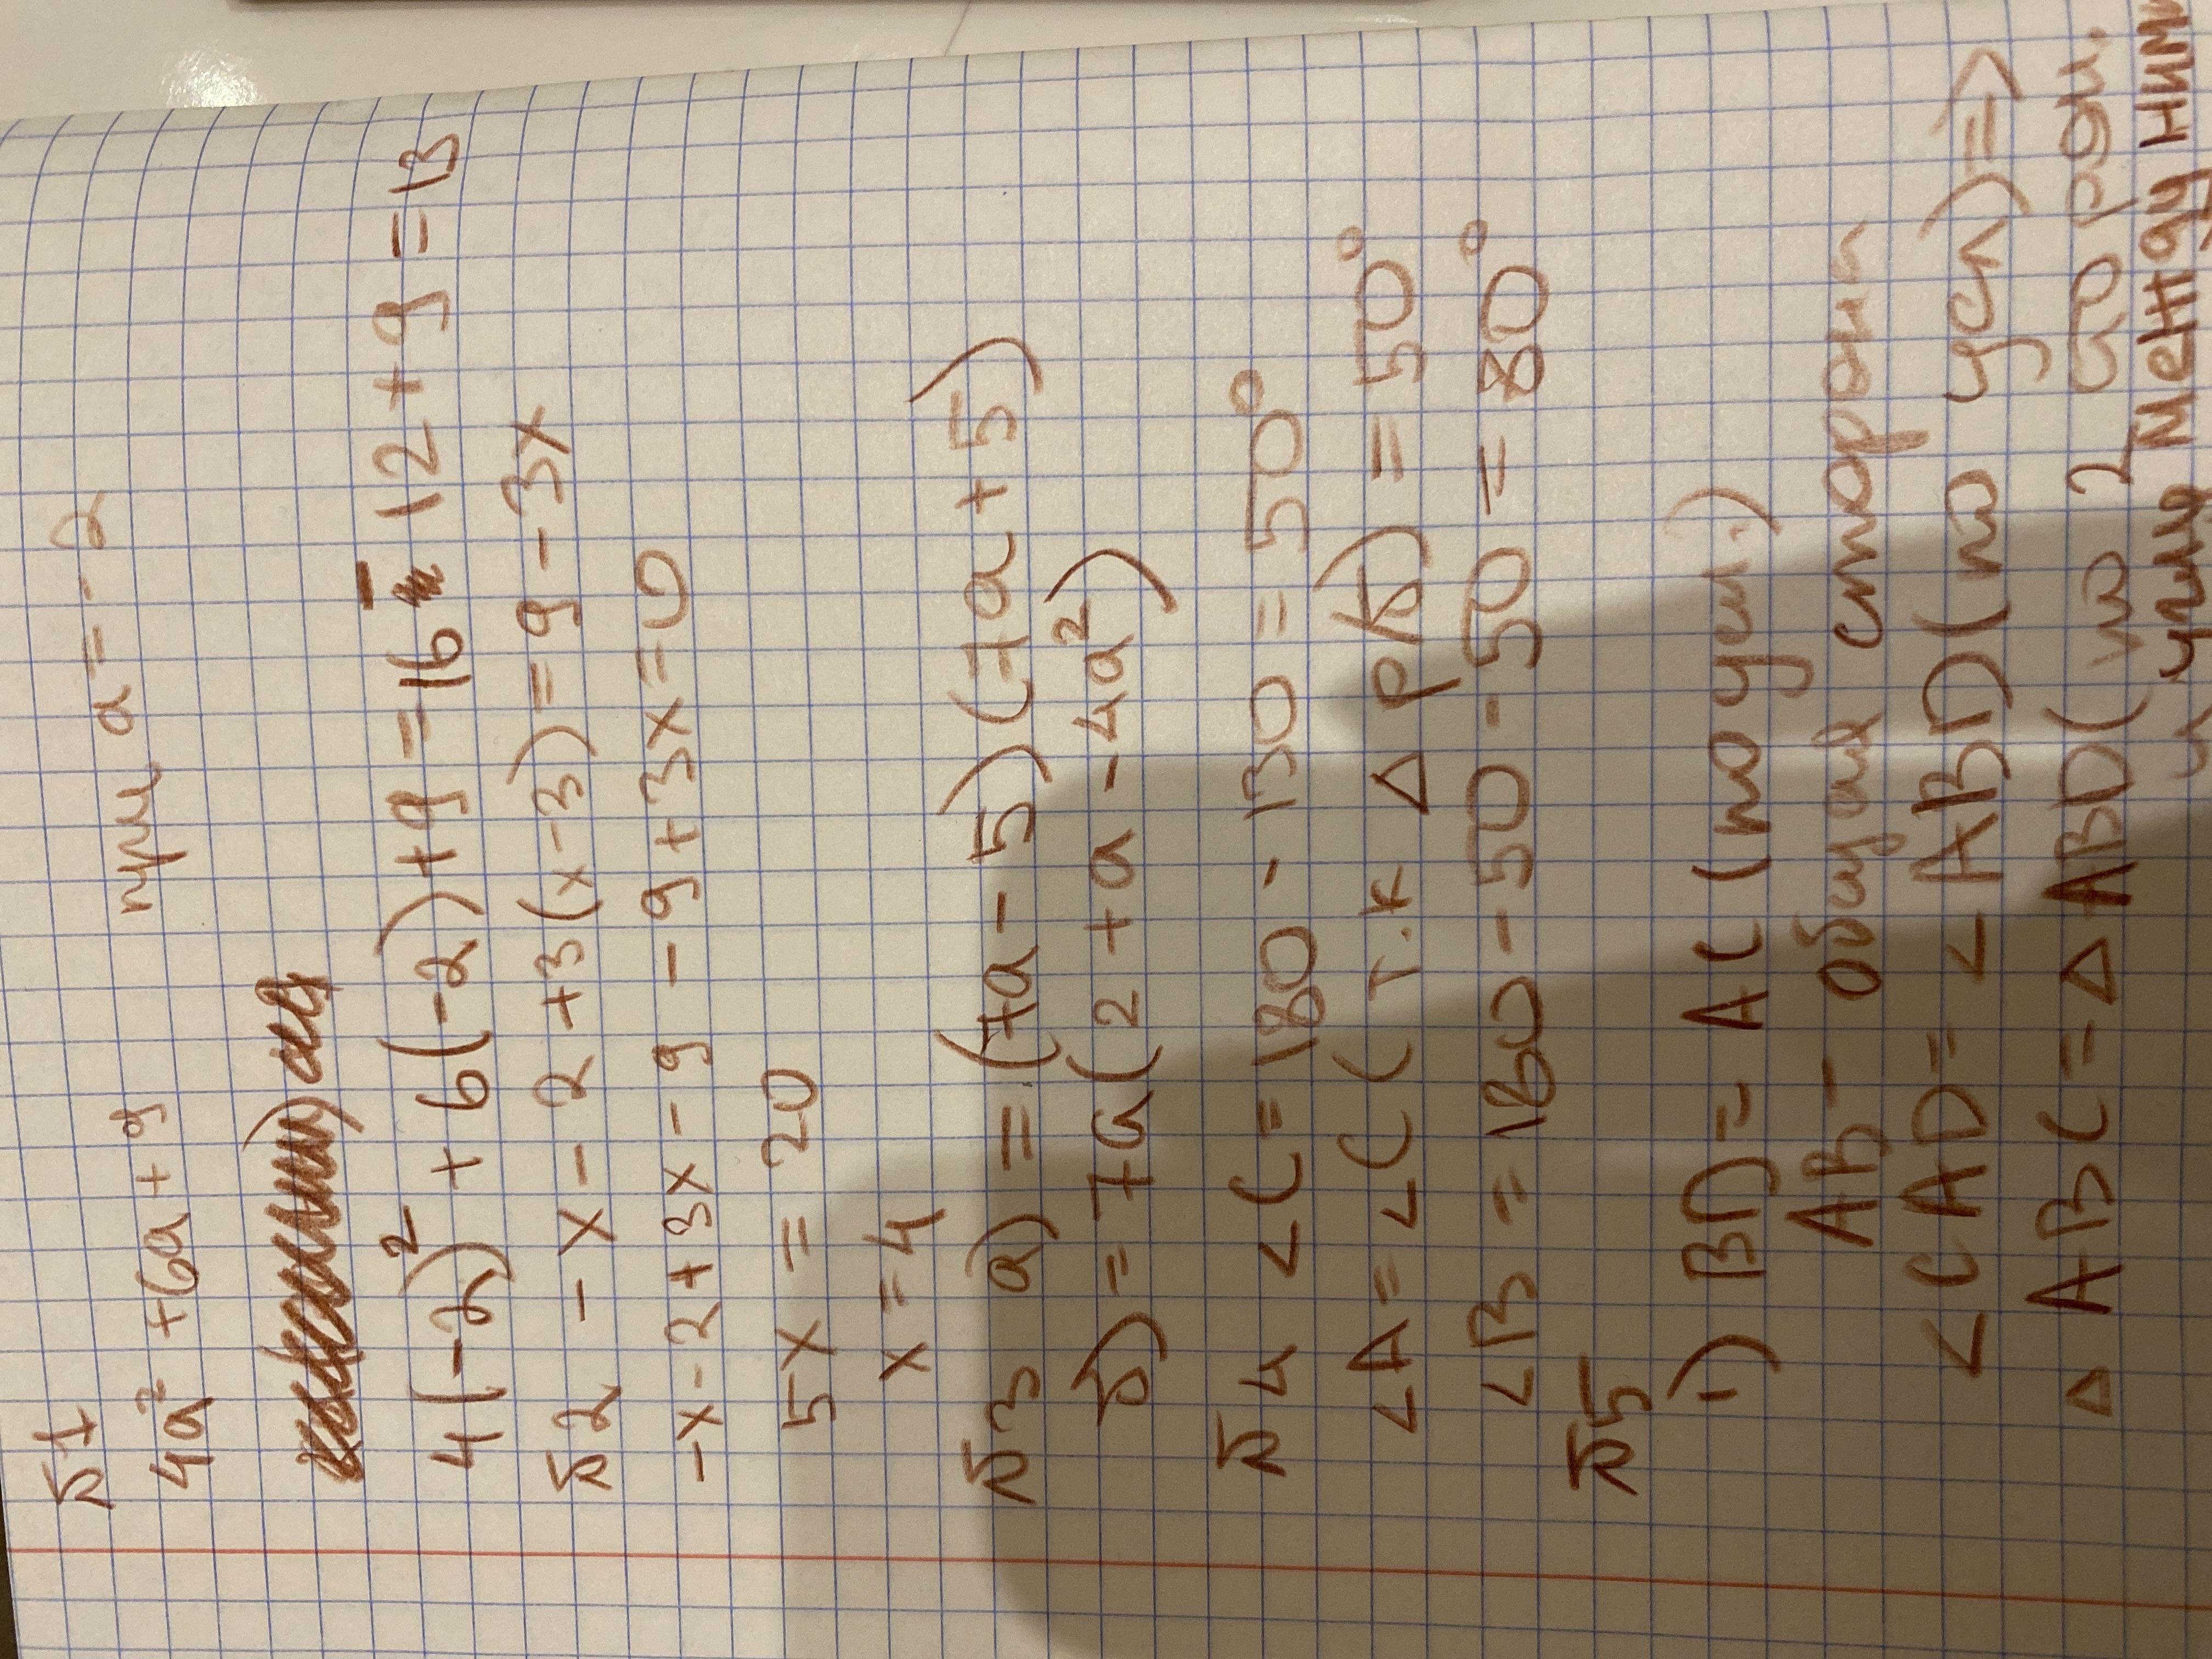 №1
4a² + 6a + 9 при a = -2
4(-2)² + 6(-2) + 9 = 16 - 12 + 9 = 13
№2 -x - 2 + 3(x-3) = 9 - 3x
-x - 2 + 3x - 9 - 9 + 3x = 0
5x = 20
x = 4
№3 а) = (7a - 5)(7a + 5)
б) = 7a(2 + a - 4a²)
№4 ∠C = 180 - 130 = 50°
∠A = ∠C (т.к △ р/б) = 50°
∠B = 180 - 50 - 50 = 80°
№5
1) BD = AC (по усл.)
AB - общая сторона
∠CAD = ∠ABD (по усл) ⇒
△ABC = △ABD (по 2 сторон.
и углу между ним